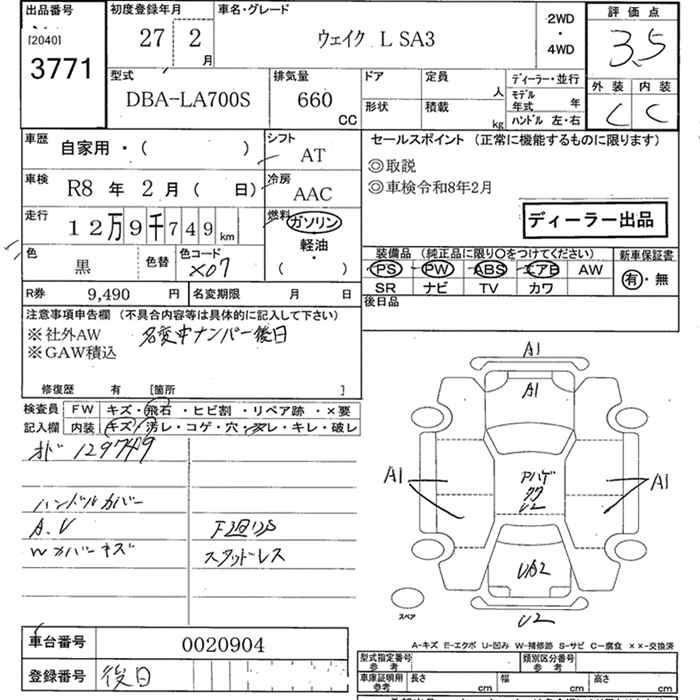 出品番号
[2040]
3771
初度登録年月
27 2
月
車名・グレード
ウェイク L SA3
2WD
・
4WD
評価点
3.5
外装 内装
C C
型式
DBA-LA700S
排気量
660
CC
ドア
形状
定員
人
積載
kg
ディーラー・並行
モデル年式 年
ハンドル 左・右
車歴
自家用・( )
シフト
AT
車検
R8 年 2 月( 日)
冷房
AAC
走行
12万9千749 km
燃料
ガソリン
軽油
・
( )
色
黒
色替
色コード
X07
R券 9,490 円
名変期限 月 日
セールスポイント (正常に機能するものに限ります)
◎取説
◎車検令和8年2月
ディーラー出品
装備品 (純正品に限り○をつけてください)
PS PW ABS エアB AW
SR ナビ TV カワ
新車保証書
有・無
後日品
注意事項申告欄 (不具合内容等は具体的に記入して下さい)
※社外AW 名変中ナンバー後日
※GAW積込
修復歴 有 [箇所 ]
検査員記入欄
FW キズ・飛石・ヒビ割・リペア跡・×要
内装 キズ・汚レ・コゲ・穴・ヌレ・キレ・破レ
オド 129749
ハンドルカバー
A.V
Wカバーキズ
スタッドレス
A1
A1
A1
A1
Aハゲ
U2
UA2
U2
スペア
A-キズ E-エクボ U-凹み W-補修跡 S-サビ C-腐食 ××-交換済
車台番号 0020904
登録番号 後日
型式指定番号
参考
類別区分番号
参考
車庫証明用
参考
長さ cm
幅 cm
高さ cm